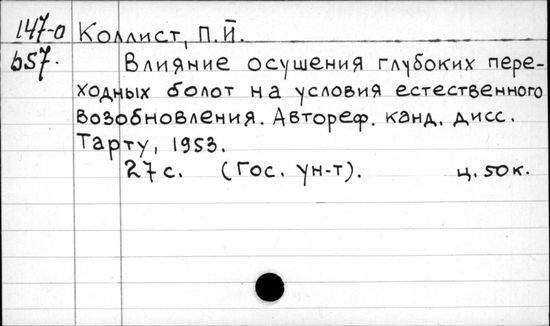 147-а Коллист, П.Й.
б57. Влияние осушения глубоких пере-
ходных болот на условия естественного
возобновления. Автореф. канд. дисс.
Тарту, 1953.
27 с. (Гос. ун-т). ц. 50 к.